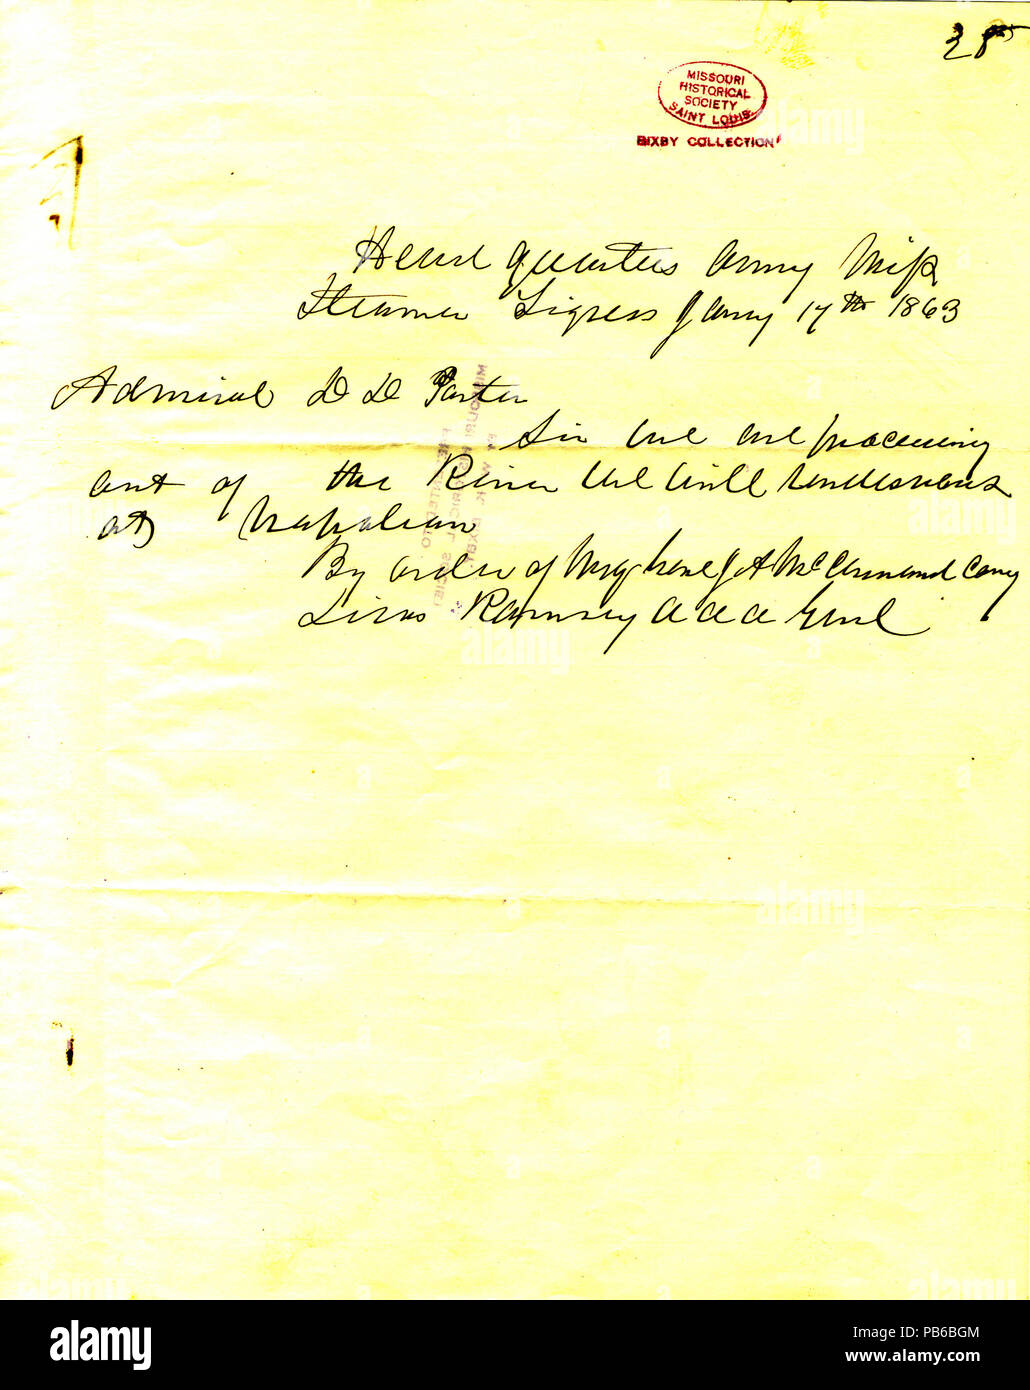 28
MISSOURI
HISTORICAL
SOCIETY
SAINT LOUIS
BIXBY COLLECTION
Head quarters Army Miss
Steamer Tigress Jany 17th 1863
Admiral D D Porter
Sir we are proceeding
out of the River We will rendesvous
at Napolean
By order of Maj Genl J A McClernand Comg
Ramsey A A A Genl
PRESENTED TO
MISSOURI HISTORICAL SOCIETY
BY W. K. BIXBY
alamy
Image ID: PB6BGM
www.alamy.com